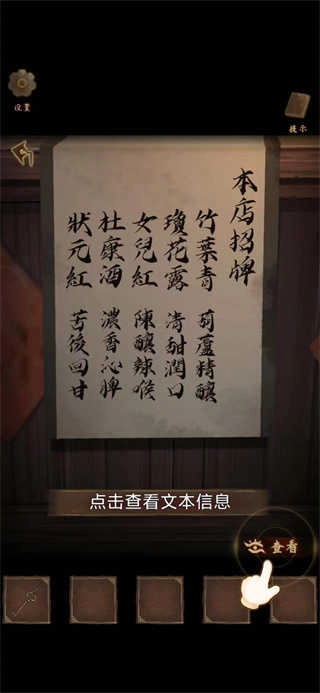 设置
提示
本店招牌
竹葉青 葫蘆特釀
瓊花露 清甜潤口
女兒紅 陳釀辣喉
杜康酒 濃香沁脾
狀元紅 苦後回甘
点击查看文本信息
查看